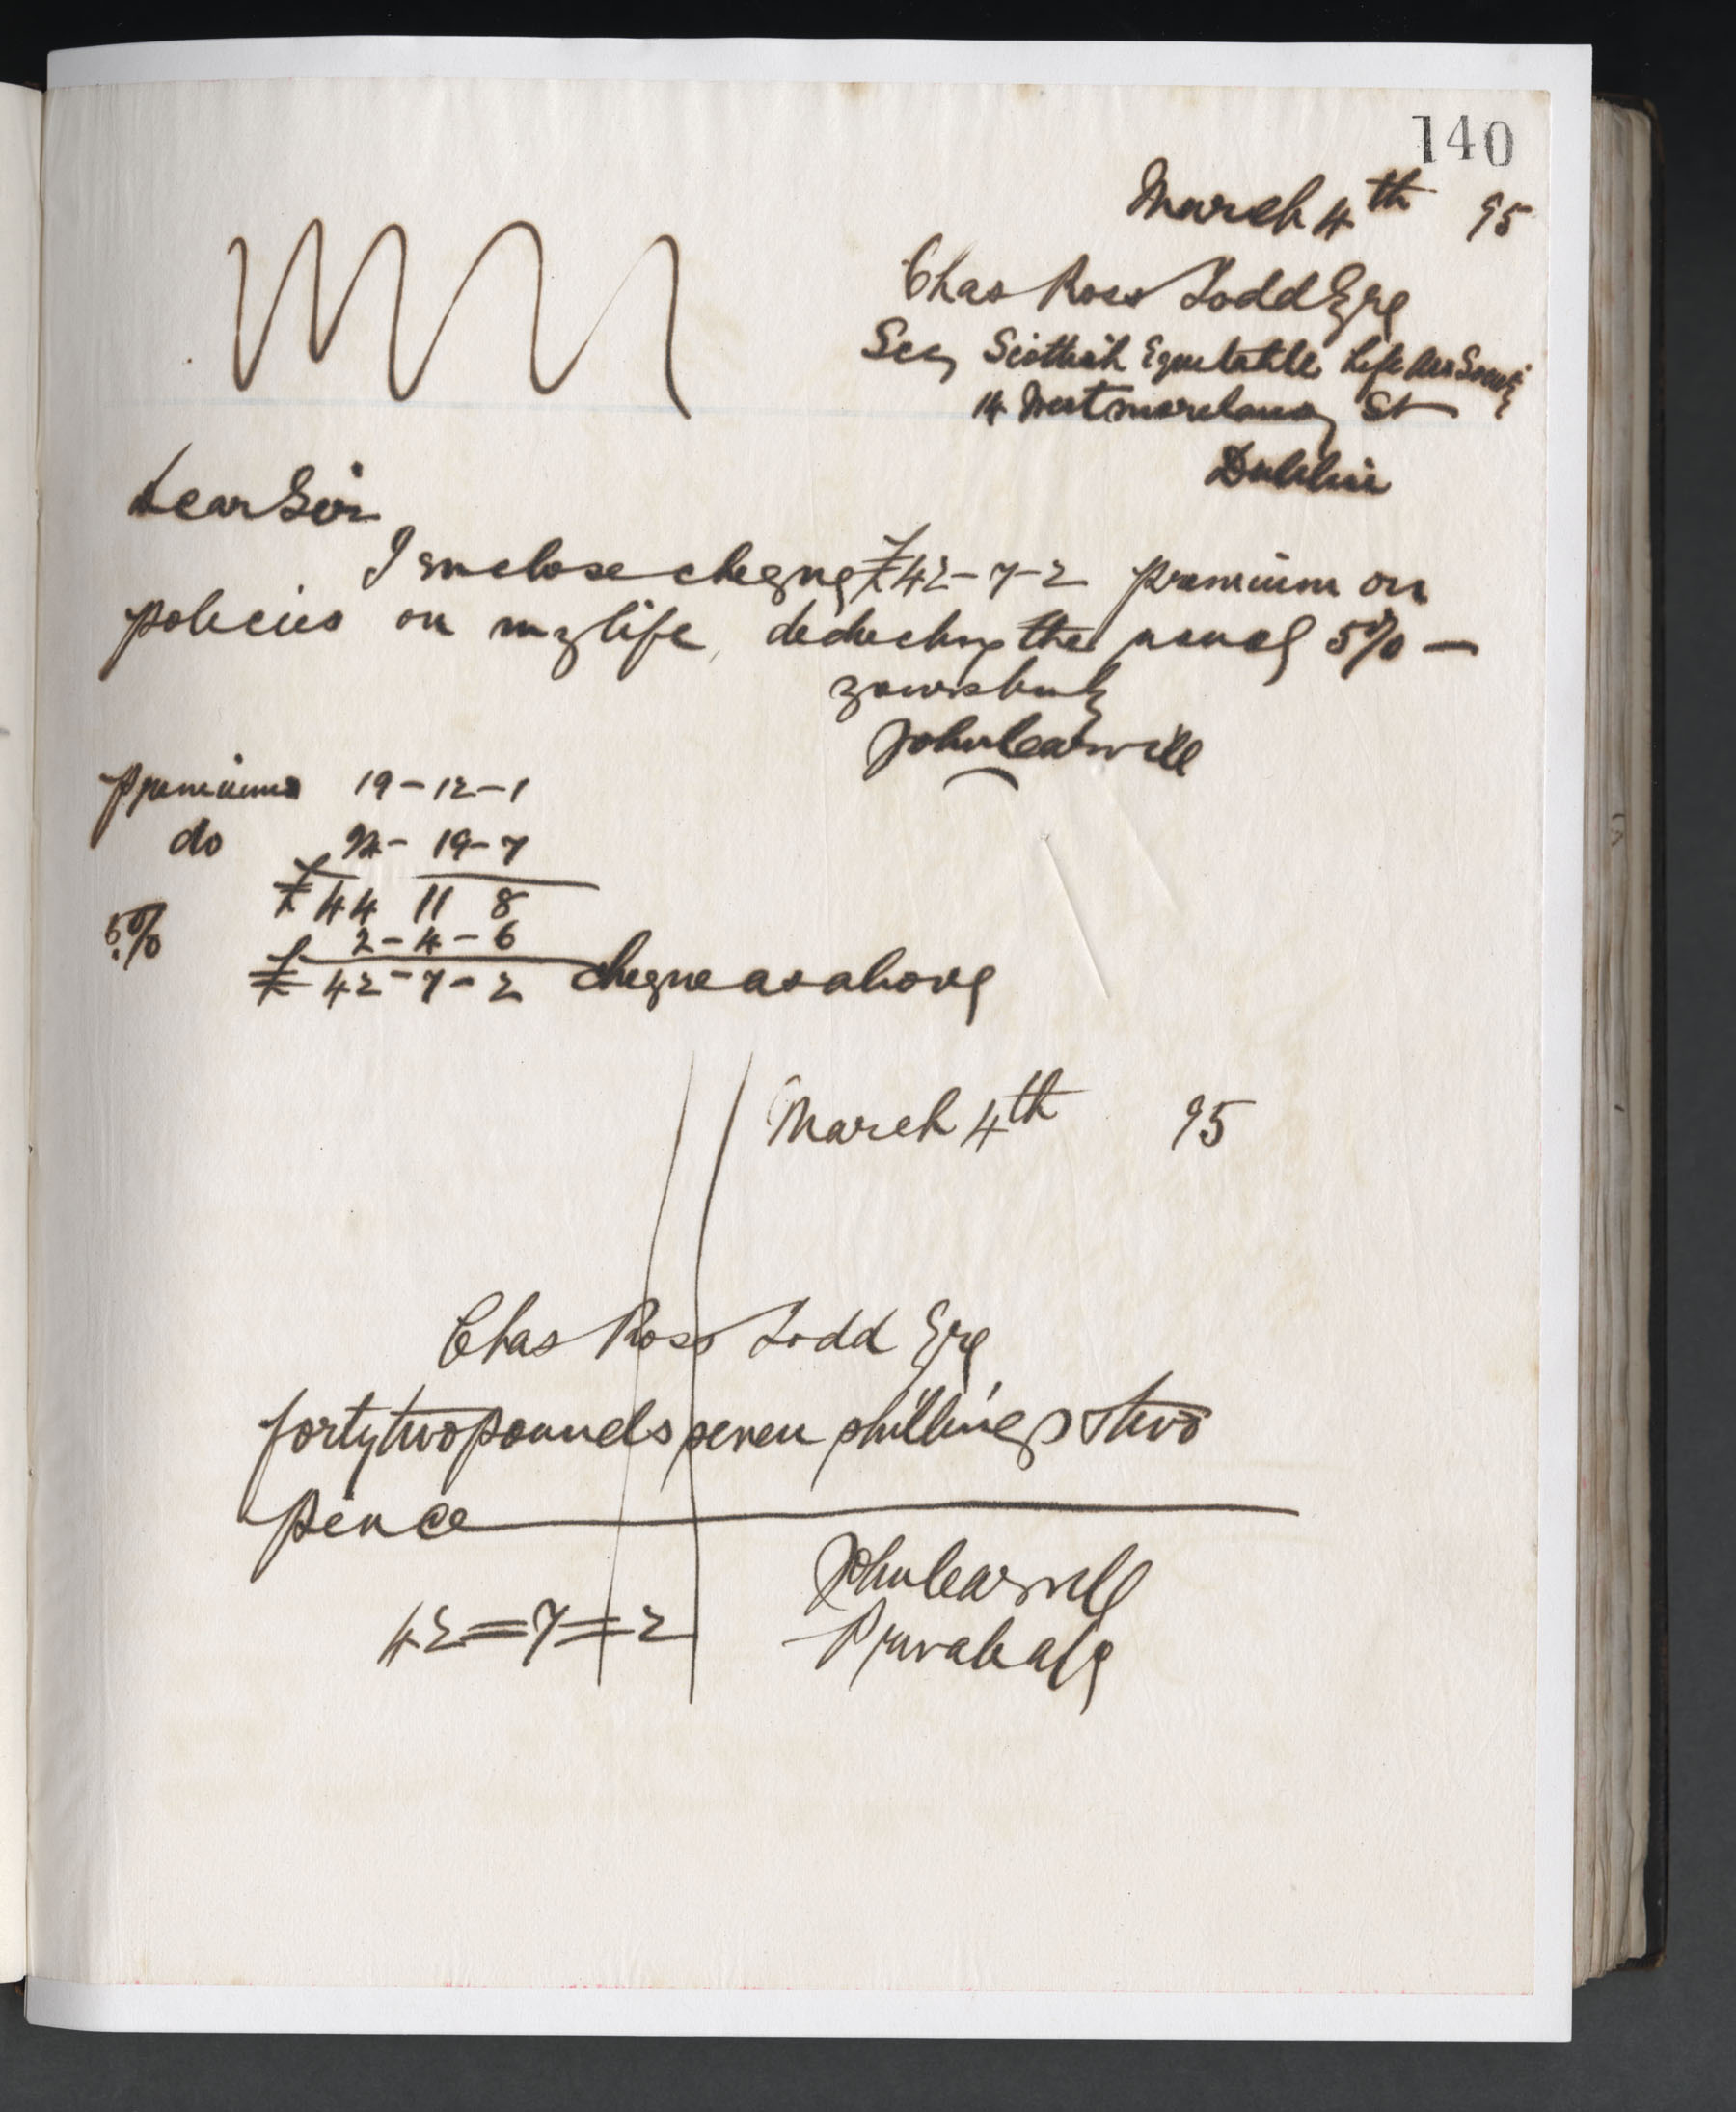 140
March 4th 95
Chas Ross Todd Esqe
Secy Scottish Equitable Life Ass Society
14 Westmoreland St
Dublin
Dear Sir
I enclose cheque £42-7-2 premium on
policies on my life, deducting the usual 5% —
yours truly
John Carvill
Premiums 19-12-1
do 24-19-7
£44 11 8
5% 2-4-6
£42-7-2 cheque as above
March 4th 95
Chas Ross Todd Esqe
forty two pounds seven shillings & two
pence
John Carvill
42=7=2 Private a/c